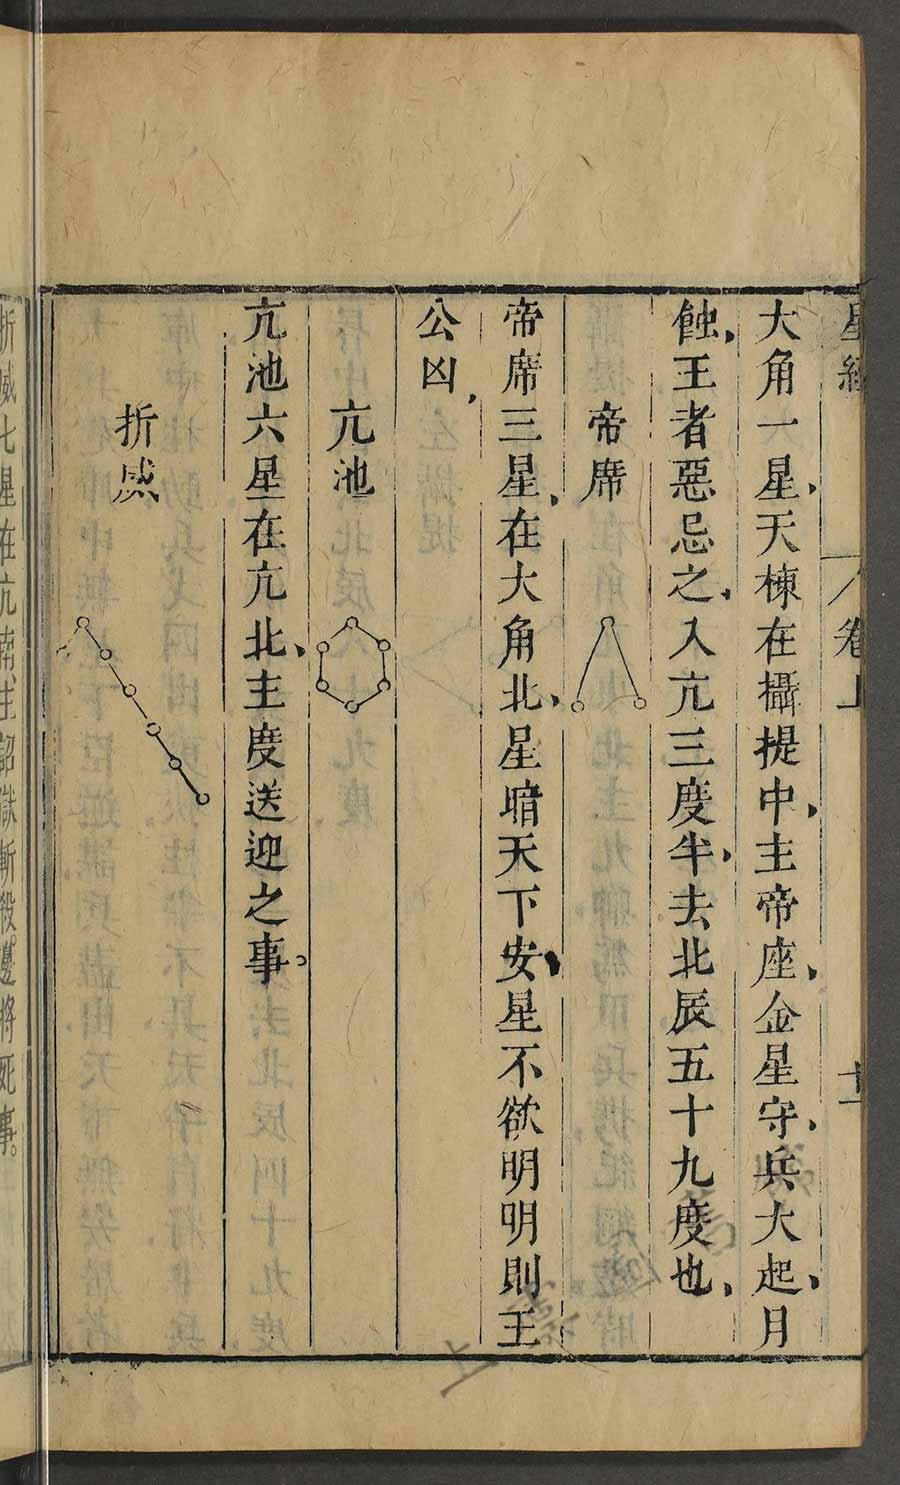 星經
卷上
大角一星,天棟在攝提中,主帝座,金星守,兵大起,月
蝕,王者惡忌之,入亢三度半,去北辰五十九度也,
帝席
帝席三星,在大角北,星暗天下安,星不欲明明則王
公凶,
亢池
亢池六星在亢北,主度送迎之事。
折威
折威七星在亢南,主詔獄斬殺,邊將死事。